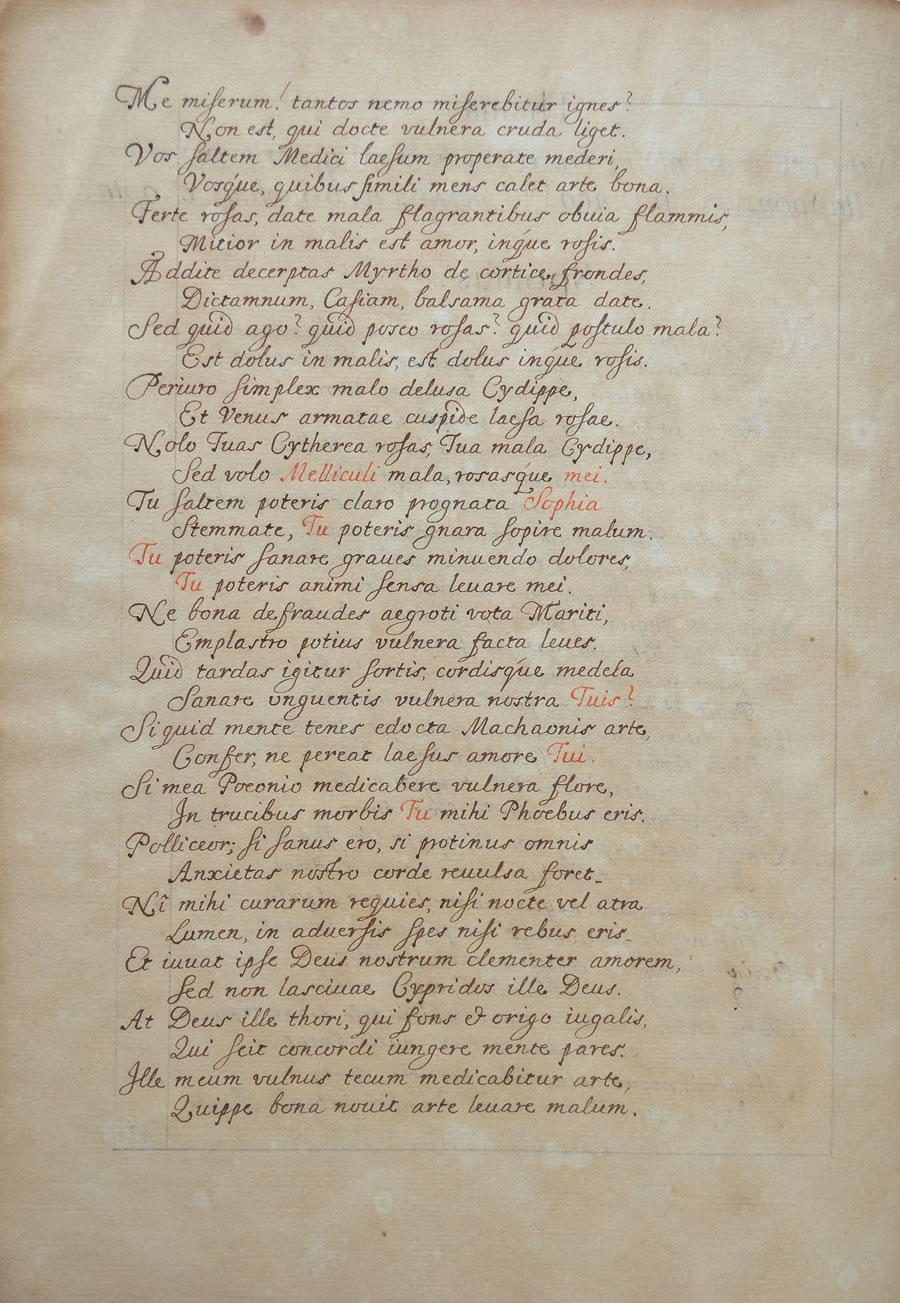 Me miserum! tantos nemo miserebitur ignes?
Non est, qui docte vulnera cruda liget.
Vos saltem Medici laesum properate mederi,
Vosque, quibus simili mens calet arte bona.
Ferte rosas, date mala flagrantibus obuia flammis,
Mitior in malis est amor, inque rosis.
Addite decerptas Myrtho de cortice frondes,
Dictamnum, Casiam, balsama grata date.
Sed quid ago? quid posco rosas? quid postulo mala?
Est dolus in malis, est dolus inque rosis.
Periuro simplex malo delusa Cydippe,
Et Venus armatae cuspide laesa rosae.
Nolo Tuas Cytherea rosas, Tua mala Cydippe,
Sed volo Melliculi mala, rosasque mei.
Tu saltem poteris claro prognata Sophia
Stemmate, Tu poteris gnara sopire malum.
Tu poteris sanare graues minuendo dolores,
Tu poteris animi sensa leuare mei.
Ne bona defraudes aegroti vota Mariti,
Emplastro potius vulnera facta leues.
Quid tardas igitur sortis, cordisque medela
Sanare vnguentis vulnera nostra Tuis?
Si quid mente tenes edocta Machaonis arte,
Confer, ne pereat laesus amore Tui.
Si mea Poeonio medicabere vulnera flore,
In trucibus morbis Tu mihi Phoebus eris.
Polliceor; si sanus ero, si protinus omnis
Anxietas nostro corde reuulsa foret.
Nî mihi curarum requies, nisi nocte vel atra
Lumen, in aduersis spes nisi rebus eris.
Et iuuat ipse Deus nostrum clementer amorem,
Sed non lasciuae Cypridos ille Deus.
At Deus ille thori, qui fons & origo iugalis,
Qui scit concordi iungere mente pares.
Ille meum vulnus tecum medicabitur arte,
Quippe bona nouit arte leuare malum.